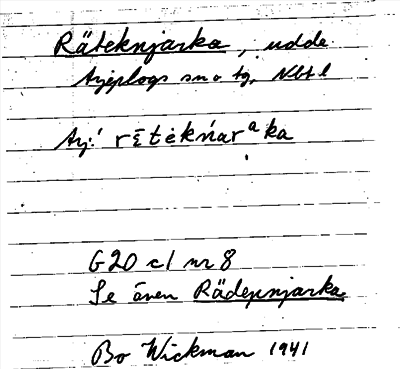 Räteknjarka, udde
Arjeplogs sn o tg, Nbt l
Arj: rētèkńarᵃka
G20 c1 nr 8
Se även Rädepnjarka
Bo Wickman 1941